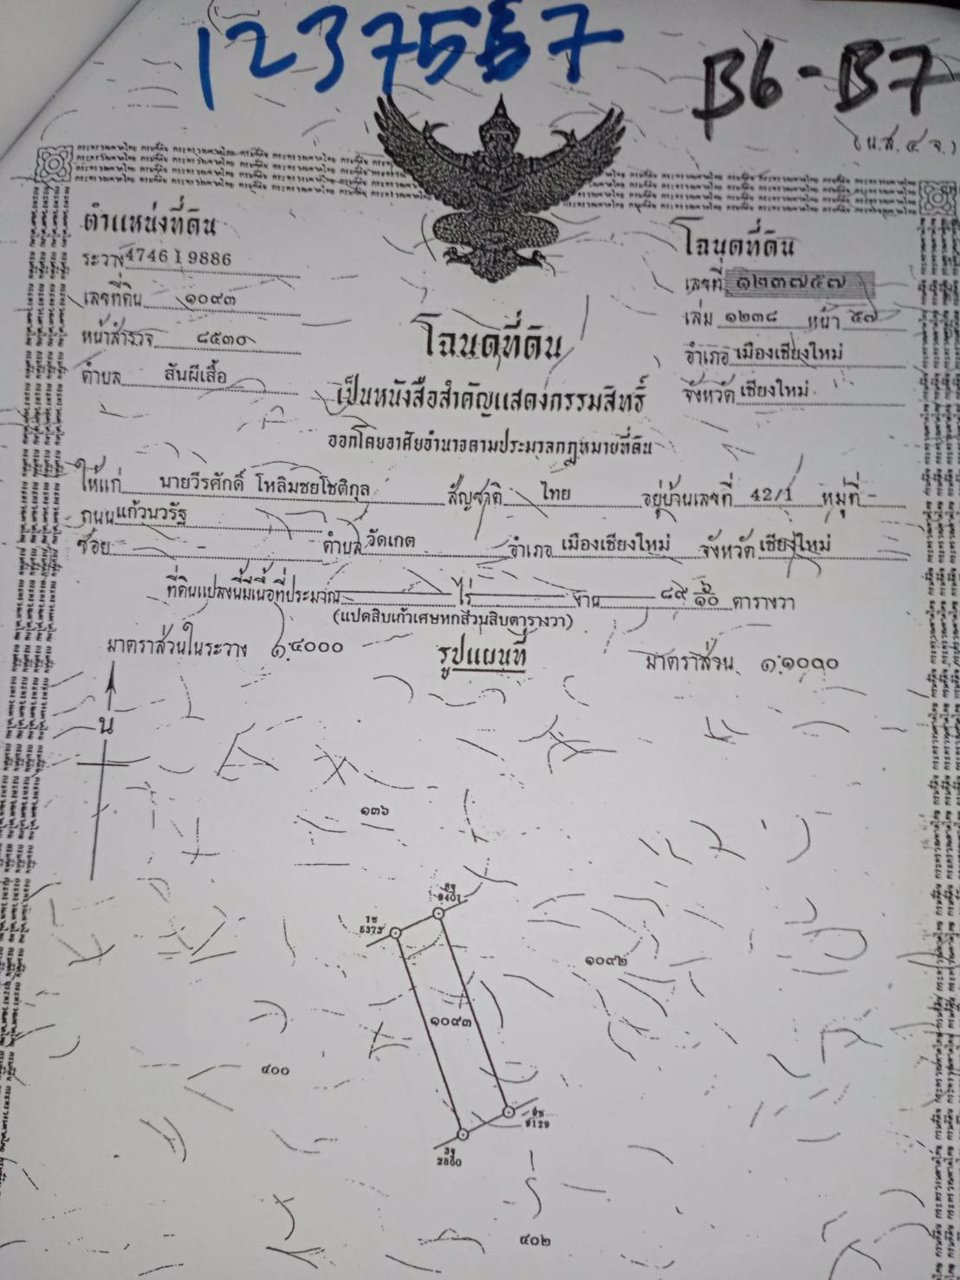 1237557
B6-B7
(น.ส.๔ จ.)
ตำแหน่งที่ดิน
ระวาง 4746 I 9886
เลขที่ดิน ๑๐๙๓
หน้าสำรวจ ๘๕๓๐
ตำบล สันผีเสื้อ
โฉนดที่ดิน
เลขที่ ๑๒๓๗๕๕๗
เล่ม ๑๒๓๘ หน้า ๕๗
อำเภอ เมืองเชียงใหม่
จังหวัด เชียงใหม่
โฉนดที่ดิน
เป็นหนังสือสำคัญแสดงกรรมสิทธิ์
ออกโดยอาศัยอำนาจตามประมวลกฎหมายที่ดิน
ให้แก่ นายวีรศักดิ์ โหลิมชยโชติกุล สัญชาติ ไทย อยู่บ้านเลขที่ 42/1 หมู่ที่ -
ถนน แก้วนวรัฐ
ซอย - ตำบล วัดเกต อำเภอ เมืองเชียงใหม่ จังหวัด เชียงใหม่
ที่ดินแปลงนี้มีเนื้อที่ประมาณ ไร่ งาน ๘๙ ๖/๑๐ ตารางวา
(แปดสิบเก้าเศษหกส่วนสิบตารางวา)
มาตราส่วนในระวาง ๑:๔๐๐๐ รูปแผนที่ มาตราส่วน ๑:๑๐๐๐
น
๑๓๖
๑๐๙๒
๑๐๙๓
๔๐๐
๔๐๒